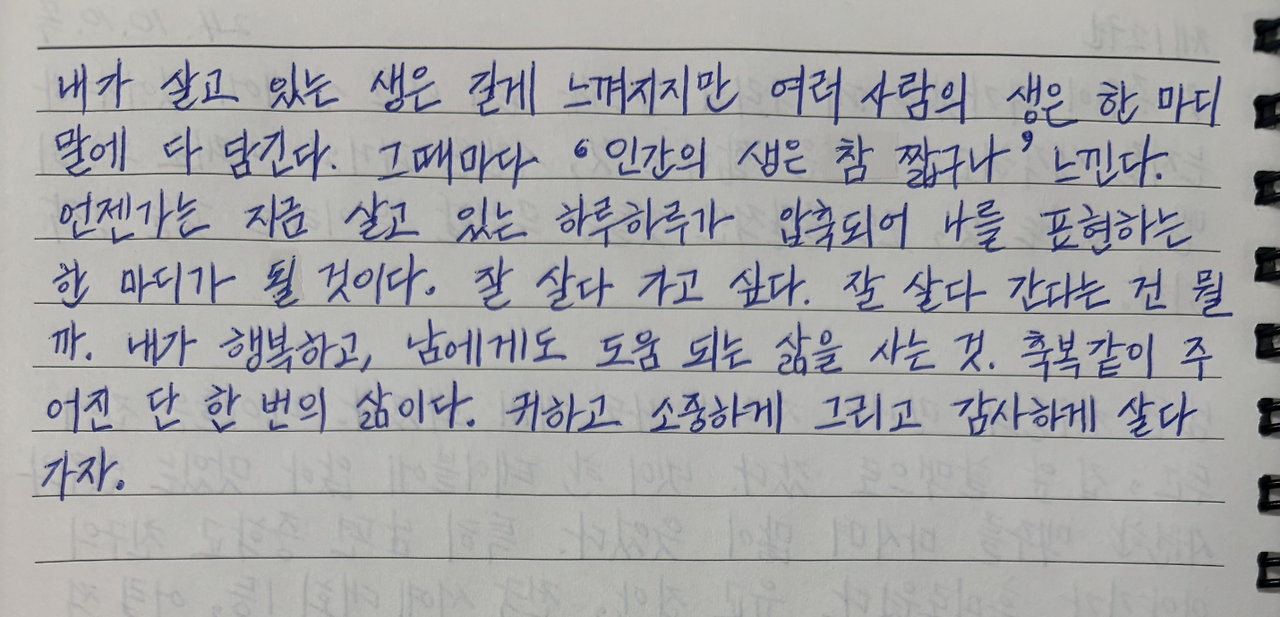 내가 살고 있는 생은 길게 느껴지지만 여러 사람의 생은 한 마디
말에 다 담긴다. 그때마다 '인간의 생은 참 짧구나' 느낀다.
언젠가는 지금 살고 있는 하루하루가 압축되어 나를 표현하는
한 마디가 될 것이다. 잘 살다 가고 싶다. 잘 살다 간다는 건 뭘
까. 내가 행복하고, 남에게도 도움 되는 삶을 사는 것. 축복같이 주
어진 단 한 번의 삶이다. 귀하고 소중하게 그리고 감사하게 살다
가자.